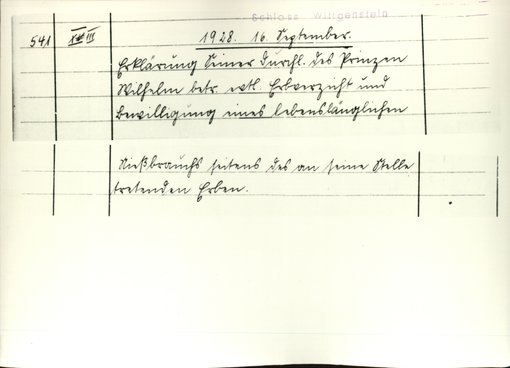 Schloss Wittgenstein
541 III 1928. 16. September.
Erklärung Seiner Durchl. des Prinzen
Wilhelm betr. evtl. Erbverzicht und
Bewilligung eines lebenslänglichen
Nießbrauchs seitens des an seine Stelle
tretenden Erben.